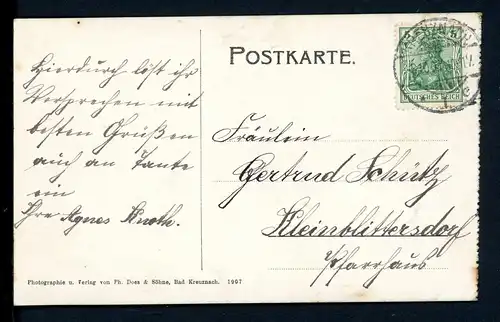 POSTKARTE.
KREUZNACH
DEUTSCHES REICH
Hierdurch löst ihr
Versprechen mit
besten Grüßen
auch an Tante
ein
Ihre Agnes Knoth.
Fräulein
Gertrud Schütz
Kleinblittersdorf
Pfarrhaus
Photographie u. Verlag von Ph. Doss & Söhne, Bad Kreuznach. 1907